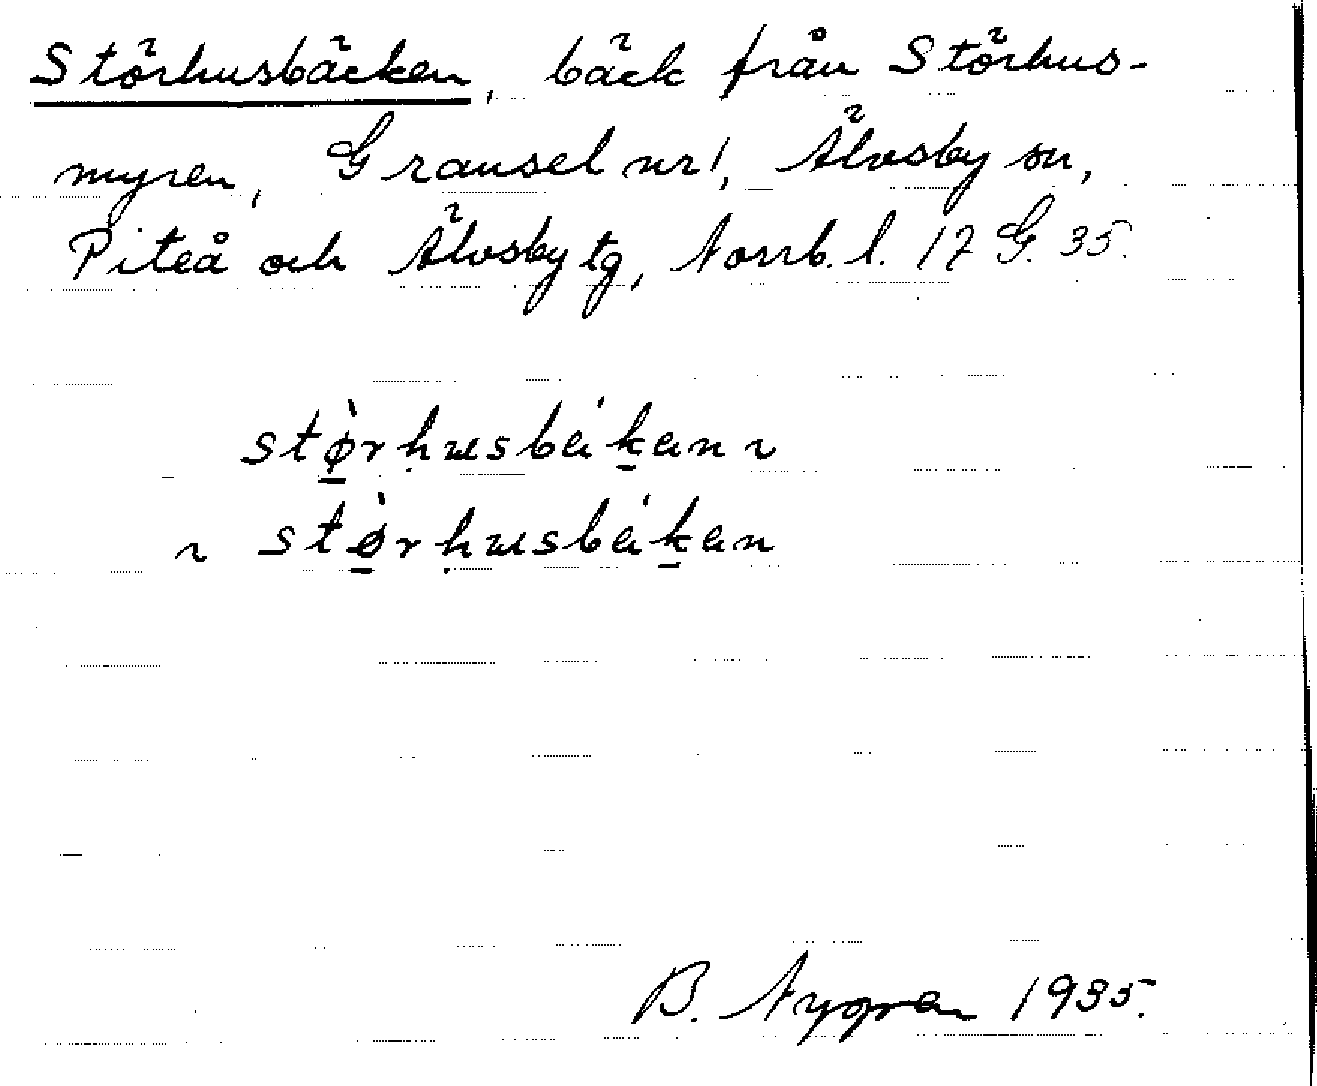 Störhusbäcken, bäck från Störhus-
myren, Gransel nr 1, Älvsby sn,
Piteå och Älvsby tg, Norrb. l. 17 G. 35.
stø̀rhusbákan ~
~ stø̀rhusbákan
B. Nygren 1935.